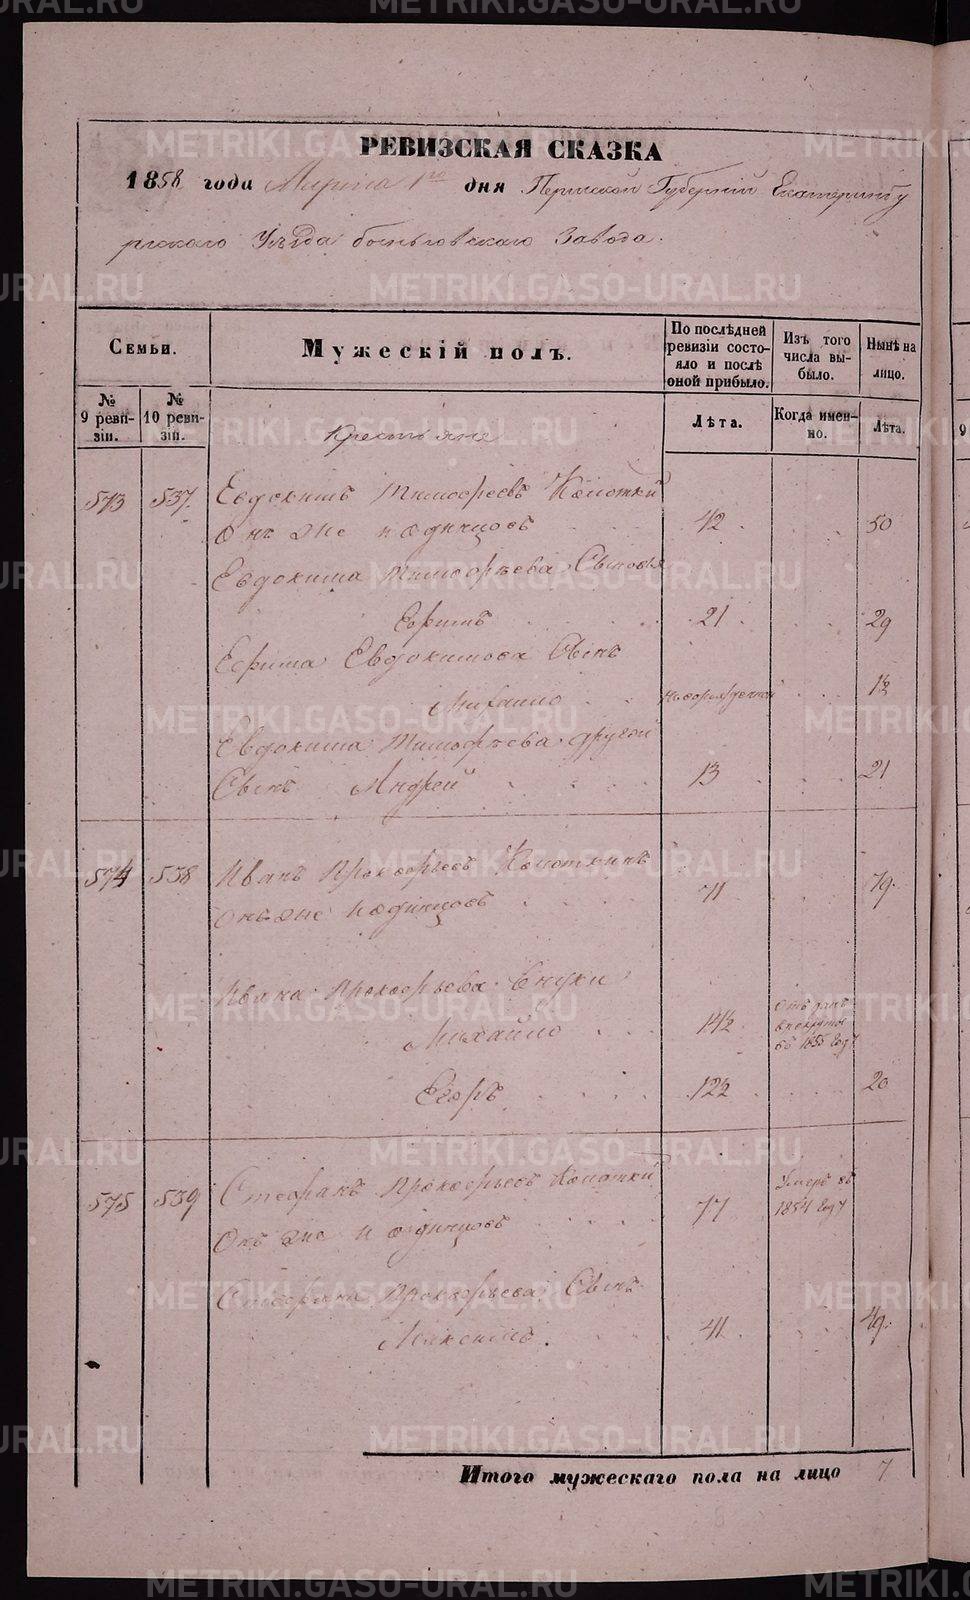 РЕВИЗСКАЯ СКАЗКА
1858 года Марта 1го дня Пермской Губерніи Екатеринбу
ргскаго Уѣзда Заводa.
Семьи.
Мужескій полъ.
По послѣдней ревизіи состояло и послѣ оной прибыло.
Изъ того числа выбыло.
Нынѣ на лицо.
№ 9 ревизіи.
№ 10 ревизіи.
Лѣта.
Когда именно.
Лѣта.
Крестьяне
573 537. Евдокимъ Тимофеевъ
Онъ же Одинцовъ 42 50
Евдокима Тимофѣева Сыновья
Ефимъ 21 29
Ефима Евдокимова Сынъ
Михаило новорожденной
Евдокима Тимофѣева другой
Сынъ Андрей 13 21
574 538 Иванъ Прокофьевъ
Онъ же Одинцовъ 71 79.
Ивана Прокофьева Внуки
Михайло 14½ Отданъ въ рекруты въ 1855 году
Егоръ 12½ 20
575 539 Стефанъ Прокофьевъ
Онъ же Одинцовъ 77 Умеръ въ 1854 году
Стефана Прокофьева Сынъ
Максимъ. 41 49.
Итого мужескаго пола на лицо 7
METRIKI.GASO-URAL.RU